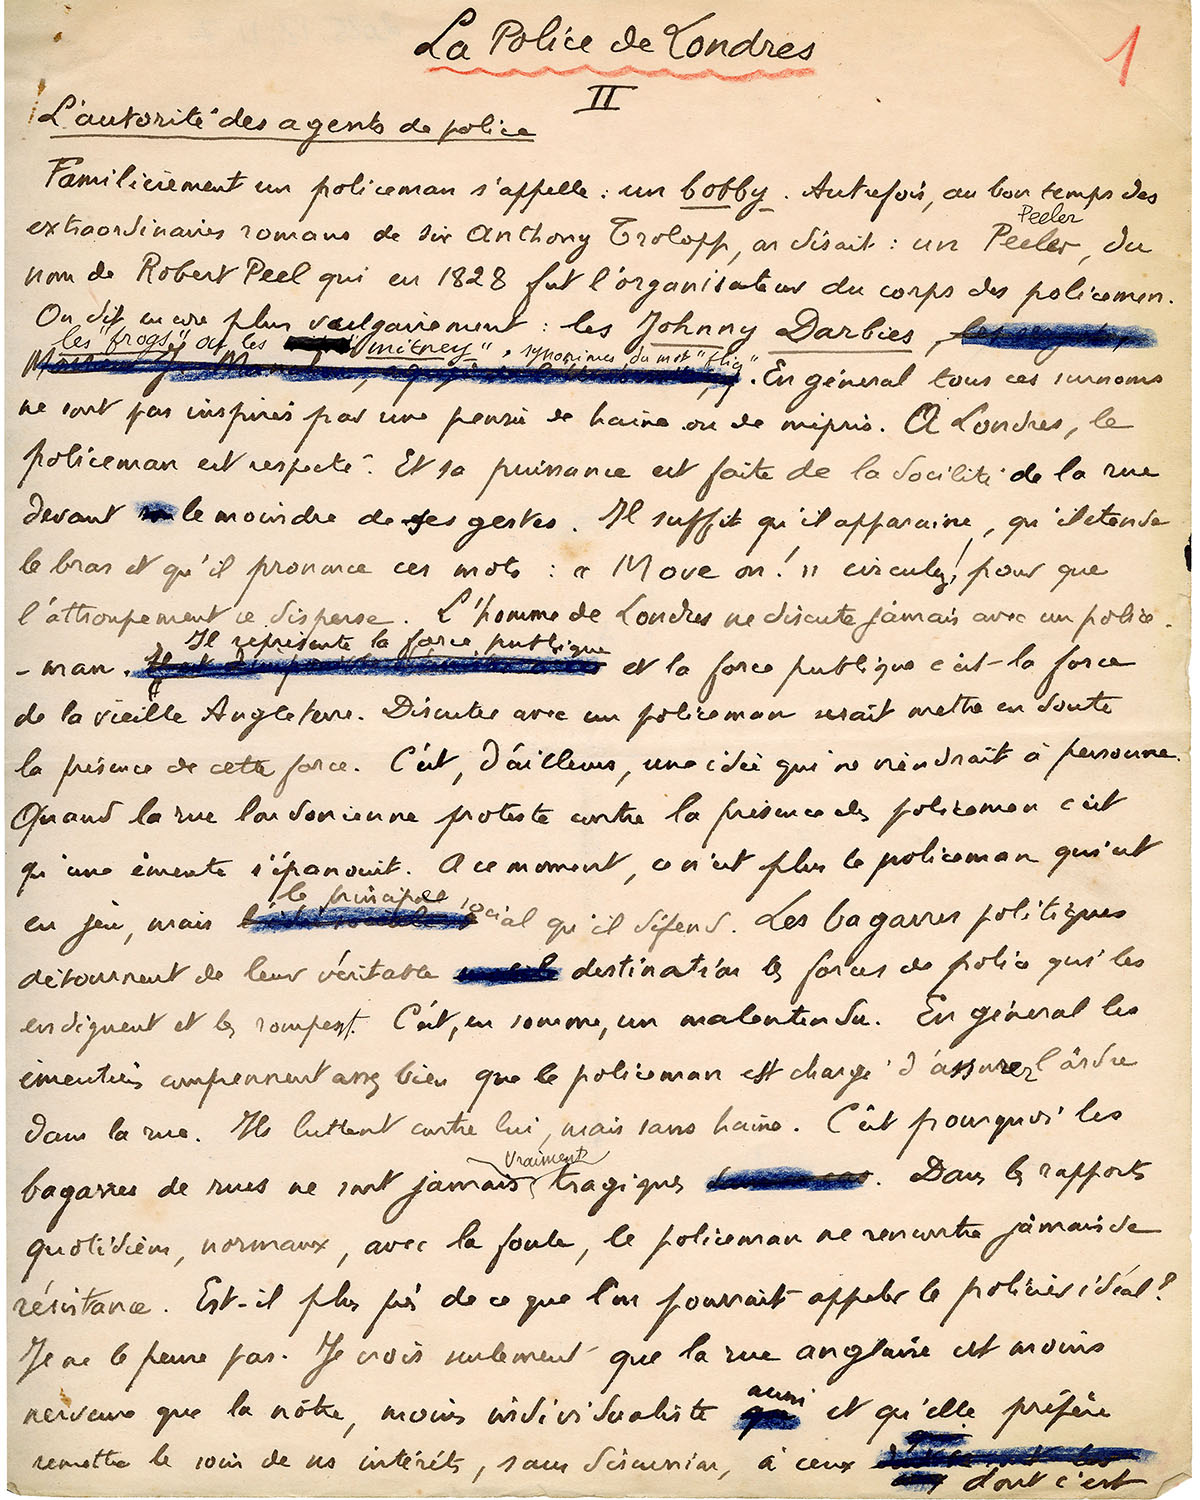 La Police de Londres
1
II
L'autorité des agents de police
Familièrement un policeman s'appelle : un bobby. Autrefois, au bon temps des
Peeler
extraordinaires romans de sir Anthony Trolopp, on disait : un Peeler, du
nom de Robert Peel qui en 1828 fut l'organisateur du corps des policemen.
On dit encore plus vulgairement : les Johnny Darbies,
les "frogs", ou les "mitney", synonimes du mot "flic"
. En général tous ces surnoms
ne sont pas inspirés par une pensée de haine ou de mépris. A Londres, le
policeman est respecté. Et sa puissance est faite de la docilité de la rue
devant le moindre de ses gestes. Il suffit qu'il apparaisse, qu'il étende
le bras et qu'il prononce ces mots : « Move on! » circulez! pour que
l'attroupement se disperse. L'homme de Londres ne discute jamais avec un police-
Il représente la force publique
-man. et la force publique c'est la force
de la vieille Angleterre. Discuter avec un policeman serait mettre en doute
la présence de cette force. C'est, d'ailleurs, une idée qui ne viendrait à personne.
Quand la rue londonienne proteste contre la présence des policeman c'est
qu'une émeute s'épanouit. A ce moment, ce n'est plus le policeman qui est
le principe
en jeu, mais social qu'il défend. Les bagarres politiques
détournent de leur véritable destination les forces de police qui les
endiguent et les rompent. C'est, en somme, un malentendu. En général les
émeutiers comprennent assez bien que le policeman est chargé d'assurer l'ordre
dans la rue. Ils luttent contre lui, mais sans haine. C'est pourquoi les
vraiment
bagarres de rues ne sont jamais tragiques. Dans les rapports
quotidiens, normaux, avec la foule, le policeman ne rencontre jamais de
résistance. Est-il plus près de ce que l'on pourrait appeler le policier idéal?
Je ne le pense pas. Je crois seulement que la rue anglaise est moins
nerveuse que la nôtre, moins individualiste aussi et qu'elle préfère
remettre le soin de ses intérêts, sans discussion, à ceux
dont c'est